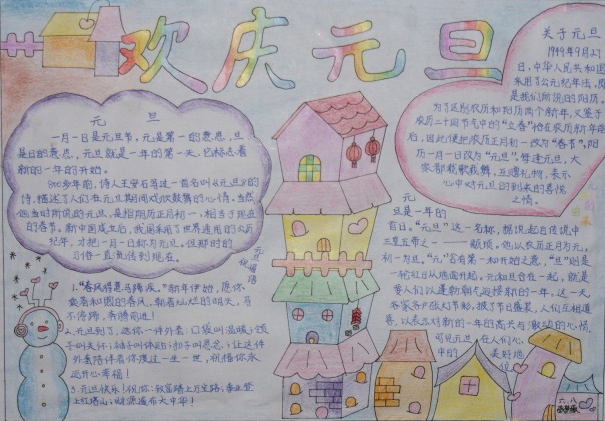 欢庆元旦
元 旦
一月一日是元旦节,元是第一的意思,旦
是日的意思,元旦就是一年的第一天,它标志着
新的一年的开始。
800多年前,诗人王安石等过一首名叫《元旦》的
诗,描述了人们在元旦期间欢欣鼓舞的心情。当然
他当时所说的元旦,是指阴历正月初一,相当于现在
的春节。新中国成立后,我国采用了世界通用的公历
纪年,才把一月一日称为元旦。但那时的
习俗一直流传到现在。
元旦祝福语
1."春风得意马蹄疾。"新年伊始,愿你
乘着和煦的春风,朝着灿烂的明天,马
不停蹄,奔腾前进!
2.元旦到了,送你一件外套:口袋叫温暖;领
子叫关怀;袖子叫体贴;扣子叫思念;让这件
外套陪伴着你度过一生一世,祝福你永
远开心幸福!
3.元旦快乐!祝你:致富踏上万宝路;事业登
上红塔山;财源遍布大中华!
关于元旦
1949年9月27
日,中华人民共和国
采用了公元纪年法,既
是我们所说的阳历,
为了区别农历和阳历两个新年,又鉴于
农历二十四节气中的"立春"恰在农历新年前
后,因此便把农历正月初一改为"春节",阳
历一月一日改为"元旦"。每逢元旦,大
家都载歌载舞、互赠礼物、表示
心中对元旦的到来的喜悦
之情。
元
旦是一年的
首日。"元旦"这一名称,据说起自传说中
三皇五帝之一——颛顼。他以农历正月为元,
初一为旦。"元"含有第一和开始之意,"旦"则是
一轮红日从地面升起。元和旦合在一起,就是
要人们以蓬勃朝气迎接新的一年。这一天
客家各户张灯节彩,披了节日盛装,人们互相道
喜,以表示对新的一年的高兴与激动的心情,
可见元旦 在人们心
中的 美好地
位
六、八